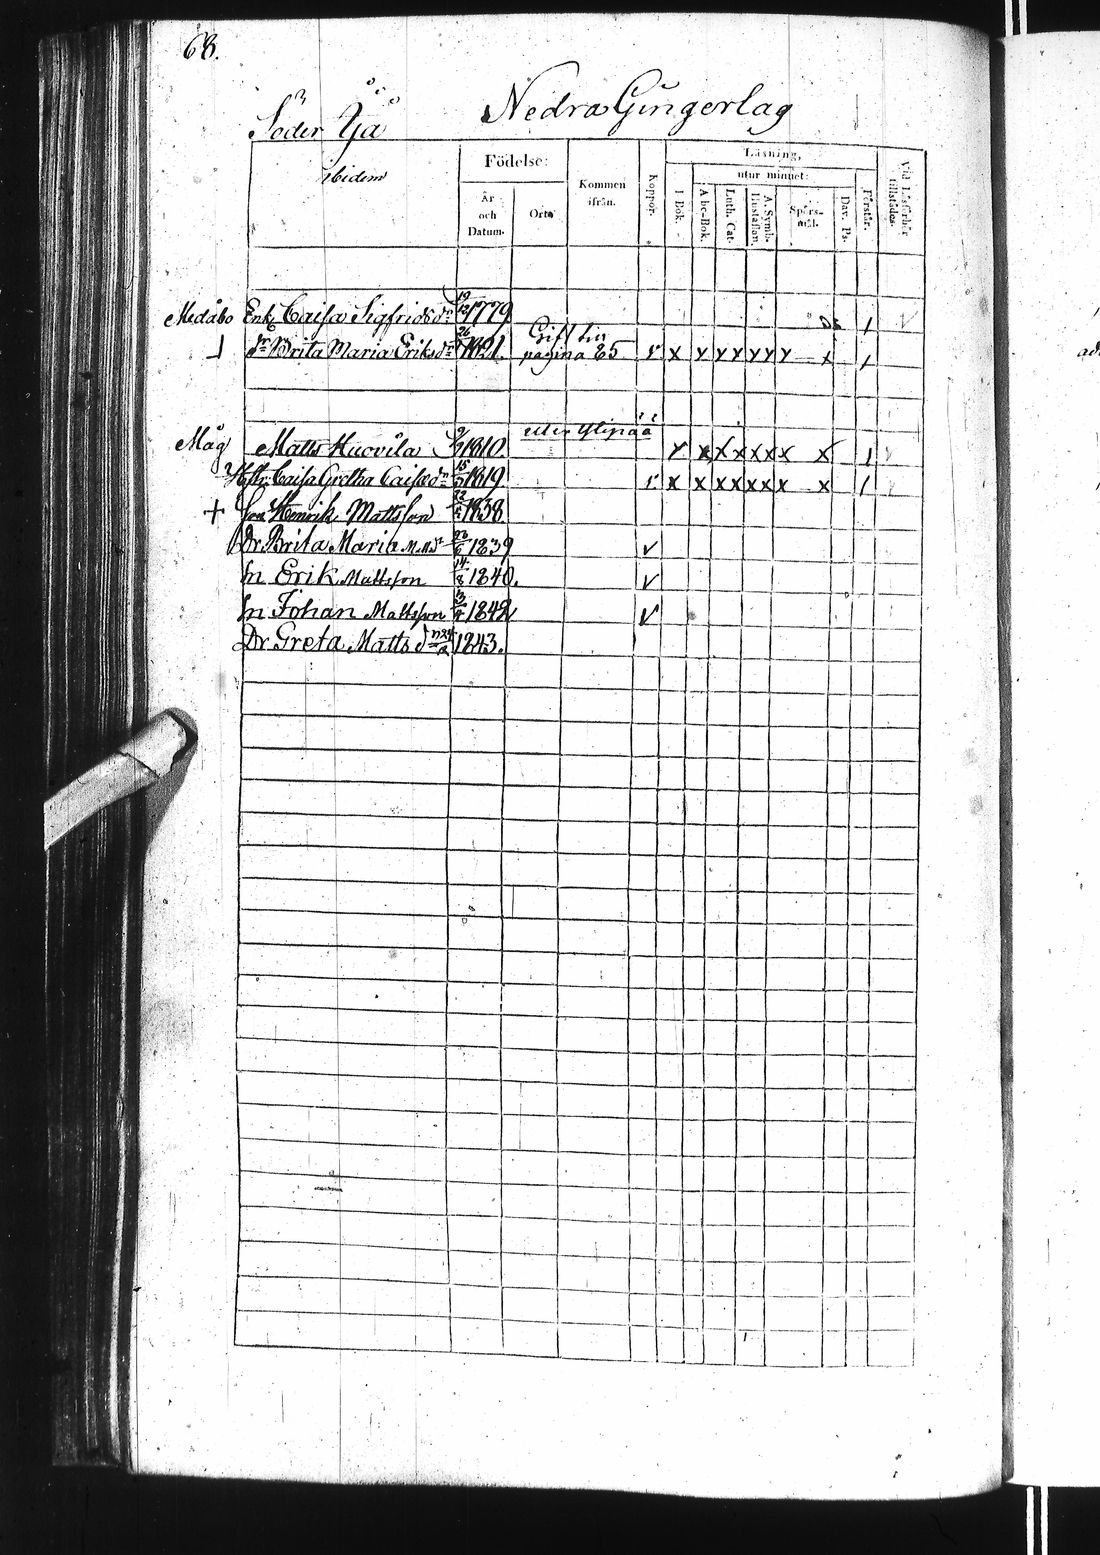 68.
Söder Yä
Nedra Gungerlag
ibidem
Födelse:
År
och
Datum.
Ort
Kommen
ifrån.
Koppor.
Läsning,
utur minnet:
I Bok.
Abc-Bok.
Luth. Cat.
A. Symb.
Hustaflan.
Spörs-
mål.
Dav. Ps.
Förstår.
Vid Läsförhör
tillstädes.
Enk. Caisa Sigfridsdr 19/12 1779 1
dr Brita Maria Eriksdr 1821. Gift hür
pagina 85 v x x x x x x x x 1
Måg Matts Huovila 1810 x x x x x x x x 1
Hstr. Caisa Gretha Caisadr 15 1819 v x x x x x x x x 1
+ Son Henrik Mattsson 1838
Dr Brita Maria M.M.dr 1839 v
Sn Erik Mattsson 14/8 1840. v
Sn Johan Mattsson 1842 v
Dr Greta Mattsd 1843.